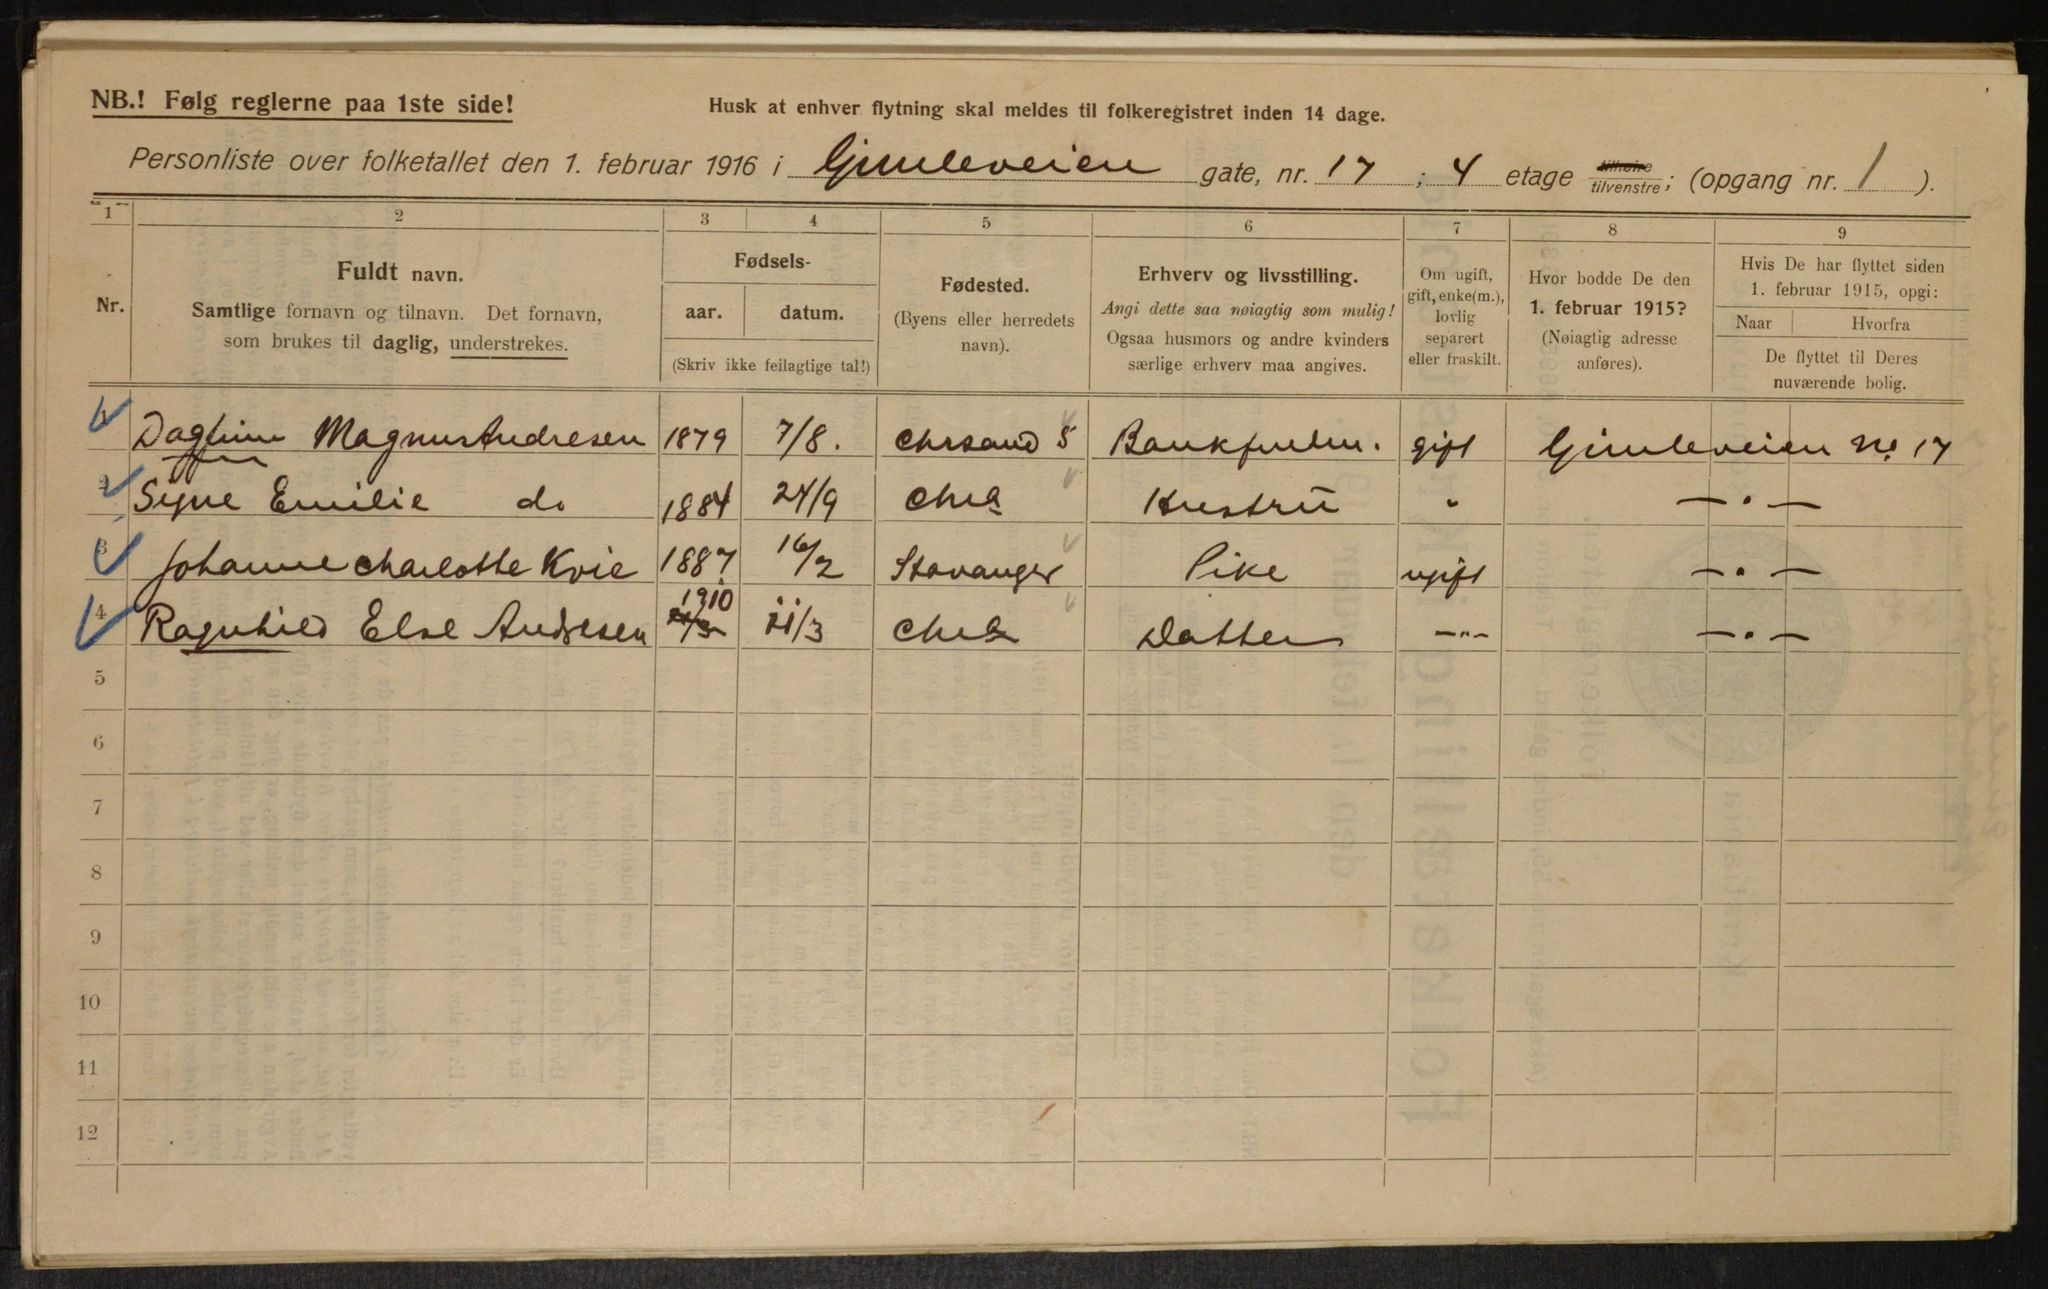 NB.! Følg reglerne paa 1ste side!
Husk at enhver flytning skal meldes til folkeregistret inden 14 dage.
Personliste over folketallet den 1. februar 1916 i Gimleveien gate, nr. 17 ; 4 etage tilhøire tilvenstre; (opgang nr. 1 ).
1 2 3 4 5 6 7 8 9
Nr.
Fuldt navn.
Samtlige fornavn og tilnavn. Det fornavn,
som brukes til daglig, understrekes.
Fødsels-
aar. datum.
(Skriv ikke feilagtige tal!)
Fødested.
(Byens eller herredets
navn).
Erhverv og livsstilling.
Angi dette saa nøiagtig som mulig!
Ogsaa husmors og andre kvinders
særlige erhverv maa angives.
Om ugift,
gift, enke(m.),
lovlig
separert
eller fraskilt.
Hvor bodde De den
1. februar 1915?
(Nøiagtig adresse
anføres).
Hvis De har flyttet siden
1. februar 1915, opgi:
Naar Hvorfra
De flyttet til Deres
nuværende bolig.
1 Dagfinn Magnus Andresen 1879 7/8. Chrsand S Bankfuldm. gift Gimleveien No. 17
2 Signe Emilie do 1884 24/9 Chra Hustru " — " —
3 Johanne Charlotte Kvie 1887 16/2 Stavanger Pike ugift — " —
4 Ragnhild Else Andresen 1910 11/3 Chra Datter — " — — " —
5
6
7
8
9
10
11
12